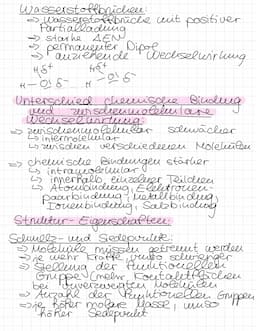 Wasserstoffbrücken:
→ Wasserstoffbrücke mit positiver
Partialladung
→ starke ΔEN
→ permanenter Dipol
→ anziehende Wechselwirkung
Hδ+ Hδ+
H – Oδ- H – Oδ-
Unterschied chemische Bindung
und zwischenmolekulare
Wechselwirkung:
→ zwischenmolekular schwächer
↳ intermolekular
↳ zwischen verschiedenen Molekülen
→ chemische Bindungen stärker
↳ intramolekular
↳ innerhalb einzelner Teilchen
↳ Atombindung, Elektronen-
paarbindung, Metallbindung,
Ionenbindung, Salzbindung
Struktur-Eigenschaften:
Schmelz- und Siedepunkt:
→ Moleküle müssen getrennt werden
→ je mehr Kräfte, umso schwieriger
→ Stellung der funktionellen
Gruppe (mehr Kontaktflächen
bei unverzweigten Molekülen
→ Anzahl der funktionellen Gruppen
→ je höher molare Masse, umso
höher Siedepunkt